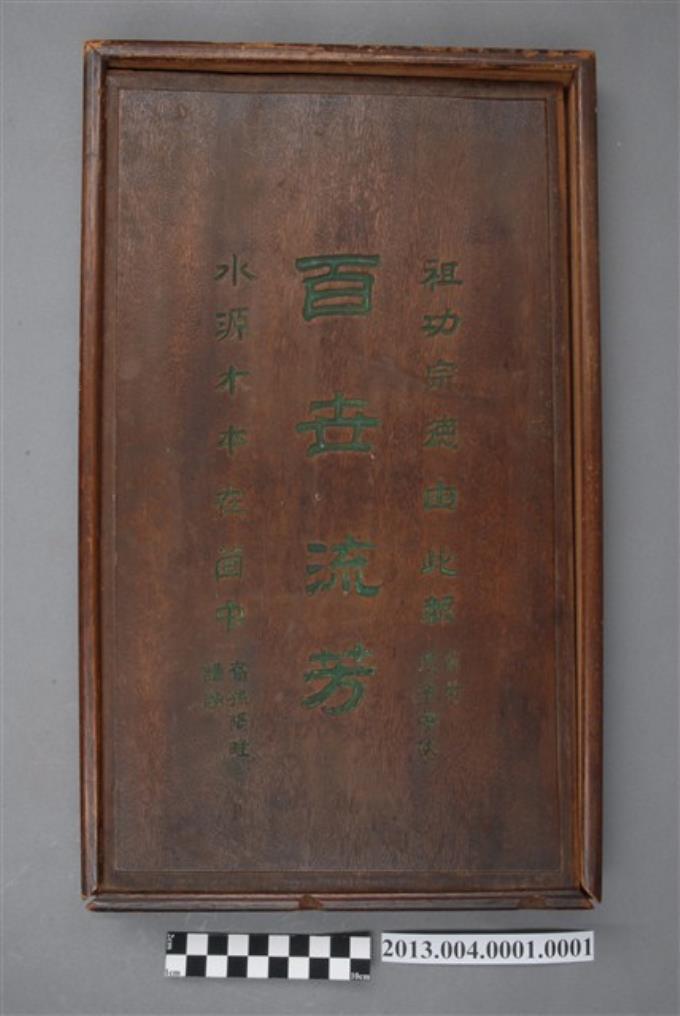 祖功宗德由此報
百世流芳
水源木本在茵中
2cm
1cm
10cm
2013.004.0001.0001